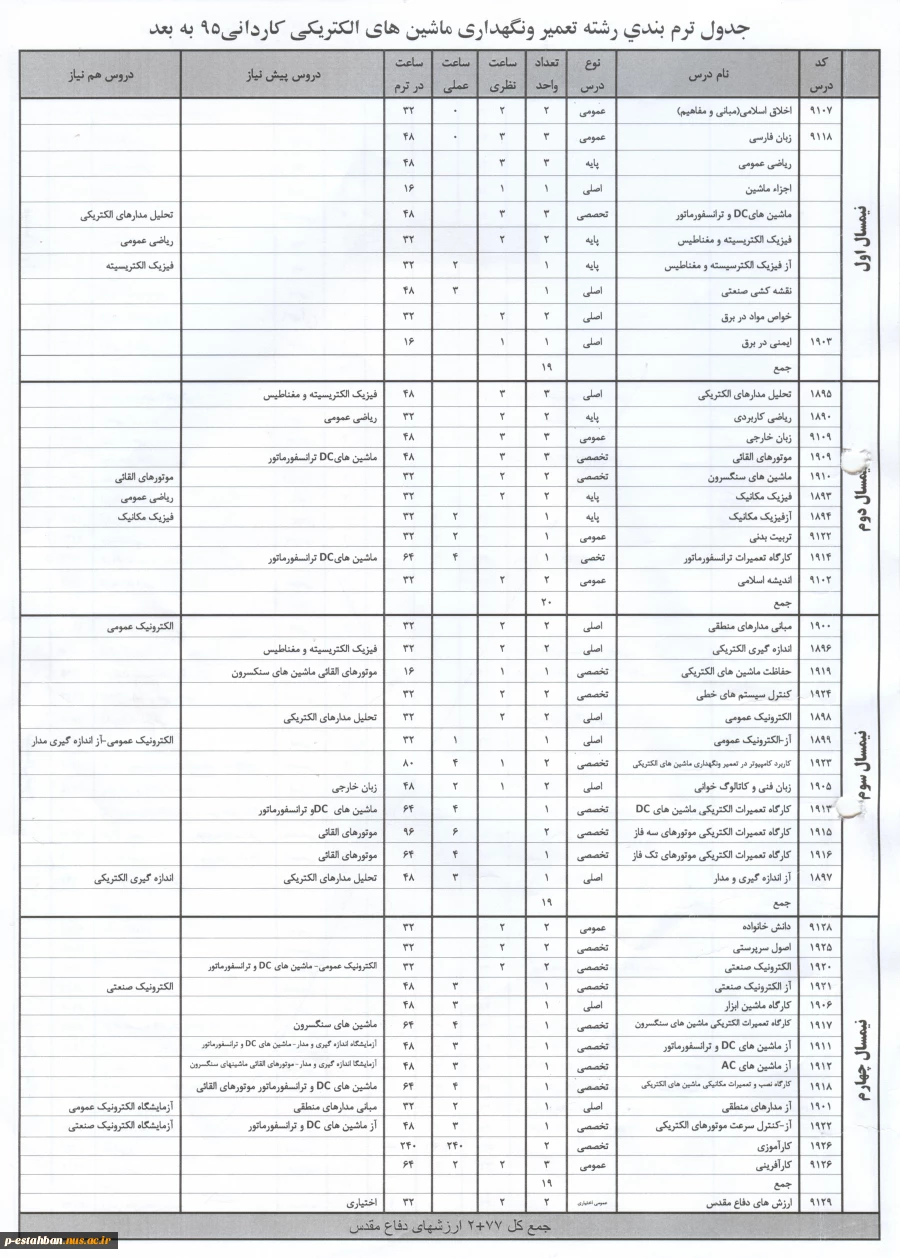 جدول ترم بندي رشته تعمیر ونگهداری ماشین های الکتریکی کاردانی۹۵ به بعد
کد درس نام درس نوع درس تعداد واحد ساعت نظری ساعت عملی ساعت در ترم دروس پیش نیاز دروس هم نیاز
نیمسال اول
۹۱۰۷ اخلاق اسلامی(مبانی و مفاهیم) عمومی ۲ ۲ ۰ ۳۲
۹۱۱۸ زبان فارسی عمومی ۳ ۳ ۰ ۴۸
ریاضی عمومی پایه ۳ ۳ ۴۸
اجزاء ماشین اصلی ۱ ۱ ۱۶
ماشین هایDC و ترانسفورماتور تحصصی ۳ ۳ ۴۸ تحلیل مدارهای الکتریکی
فیزیک الکتریسیته و مغناطیس پایه ۲ ۲ ۳۲ ریاضی عمومی
آز فیزیک الکترسیسته و مغناطیس پایه ۱ ۲ ۳۲ فیزیک الکتریسیته
نقشه کشی صنعتی اصلی ۱ ۳ ۴۸
خواص مواد در برق اصلی ۲ ۲ ۳۲
۱۹۰۳ ایمنی در برق اصلی ۱ ۱ ۱۶
جمع ۱۹
نیمسال دوم
۱۸۹۵ تحلیل مدارهای الکتریکی اصلی ۳ ۳ ۴۸ فیزیک الکتریسیته و مغناطیس
۱۸۹۰ ریاضی کاربردی پایه ۲ ۲ ۳۲ ریاضی عمومی
۹۱۰۹ زبان خارجی عمومی ۳ ۳ ۴۸
۱۹۰۹ موتورهای القائی تخصصی ۳ ۳ ۴۸ ماشین هایDC ترانسفورماتور
۱۹۱۰ ماشین های سنگسرون تخصصی ۲ ۲ ۳۲ موتورهای القائی
۱۸۹۳ فیزیک مکانیک پایه ۲ ۲ ۳۲ ریاضی عمومی
۱۸۹۴ آزفیزیک مکانیک پایه ۱ ۲ ۳۲ فیزیک مکانیک
۹۱۲۲ تربیت بدنی عمومی ۱ ۲ ۳۲
۱۹۱۴ کارگاه تعمیرات ترانسفورماتور تخصی ۱ ۴ ۶۴ ماشین هایDC ترانسفورماتور
۹۱۰۲ اندیشه اسلامی عمومی ۲ ۲ ۳۲
جمع ۲۰
نیمسال سوم
۱۹۰۰ مبانی مدارهای منطقی اصلی ۲ ۲ ۳۲ الکترونیک عمومی
۱۸۹۶ اندازه گیری الکتریکی اصلی ۲ ۲ ۳۲ فیزیک الکتریسیته و مغناطیس
۱۹۱۹ حفاظت ماشین های الکتریکی تخصصی ۱ ۱ ۱۶ موتورهای القائی ماشین های سنکسرون
۱۹۲۴ کنترل سیستم های خطی تخصصی ۲ ۲ ۳۲
۱۸۹۸ الکترونیک عمومی اصلی ۲ ۲ ۳۲ تحلیل مدارهای الکتریکی
۱۸۹۹ آز-الکترونیک عمومی اصلی ۱ ۱ ۳۲ الکترونیک عمومی-آز اندازه گیری مدار
۱۹۲۳ کاربرد کامپیوتر در تعمیر ونگهداری ماشین های الکتریکی تخصصی ۲ ۱ ۴ ۸۰
۱۹۰۵ زبان فنی و کاتالوگ خوانی اصلی ۲ ۱ ۲ ۴۸ زبان خارجی
۱۹۱۳ کارگاه تعمیرات الکتریکی ماشین های DC تخصصی ۱ ۴ ۶۴ ماشین های DCو ترانسفورماتور
۱۹۱۵ کارگاه تعمیرات الکتریکی موتورهای سه فاز تخصصی ۲ ۶ ۹۶ موتورهای القائی
۱۹۱۶ کارگاه تعمیرات الکتریکی موتورهای تک فاز تخصصی ۱ ۴ ۶۴ موتورهای القائی
۱۸۹۷ آز اندازه گیری و مدار اصلی ۱ ۳ ۴۸ تحلیل مدارهای الکتریکی اندازه گیری الکتریکی
جمع ۱۹
نیمسال چهارم
۹۱۲۸ دانش خانواده عمومی ۲ ۲ ۳۲
۱۹۲۵ اصول سرپرستی تخصصی ۲ ۲ ۳۲
۱۹۲۰ الکترونیک صنعتی تخصصی ۲ ۲ ۳۲ الکترونیک عمومی- ماشین های DC و ترانسفورماتور
۱۹۲۱ آز الکترونیک صنعتی تخصصی ۱ ۳ ۴۸ الکترونیک صنعتی
۱۹۰۶ کارگاه ماشین ابزار اصلی ۱ ۳ ۴۸
۱۹۱۷ کارگاه تعمیرات الکتریکی ماشین های سنگسرون تخصصی ۱ ۴ ۶۴ ماشین های سنگسرون
۱۹۱۱ آز ماشین های DC و ترانسفورماتور تخصصی ۱ ۳ ۴۸ آزمایشگاه اندازه گیری و مدار- ماشین های DC و ترانسفورماتور
۱۹۱۲ آز ماشین های AC تخصصی ۱ ۳ ۴۸ آزمایشگا اندازه گیری و مدار- موتورهای القائی ماشینهای سنگسرون
۱۹۱۸ کارگاه نصب و تعمیرات مکانیکی ماشین های الکتریکی تخصصی ۱ ۴ ۶۴ ماشین های DC و ترانسفورماتور موتورهای القائی
۱۹۰۱ آز مدارهای منطقی اصلی ۱ ۲ ۳۲ مبانی مدارهای منطقی آزمایشگاه الکترونیک عمومی
۱۹۲۲ آز-کنترل سرعت موتورهای الکتریکی تخصصی ۱ ۳ ۴۸ آز ماشین های DC و ترانسفورماتور آزمایشگاه الکترونیک صنعتی
۱۹۲۶ کارآموزی تخصصی ۲ ۲۴۰ ۲۴۰
۹۱۲۶ کارآفرینی عمومی ۳ ۲ ۲ ۶۴
جمع ۱۹
۹۱۲۹ ارزش های دفاع مقدس عمومی اختیاری ۲ ۲ ۳۲ اختیاری
جمع کل ۷۷+۲ ارزشهای دفاع مقدس
p-estahban.nus.ac.ir